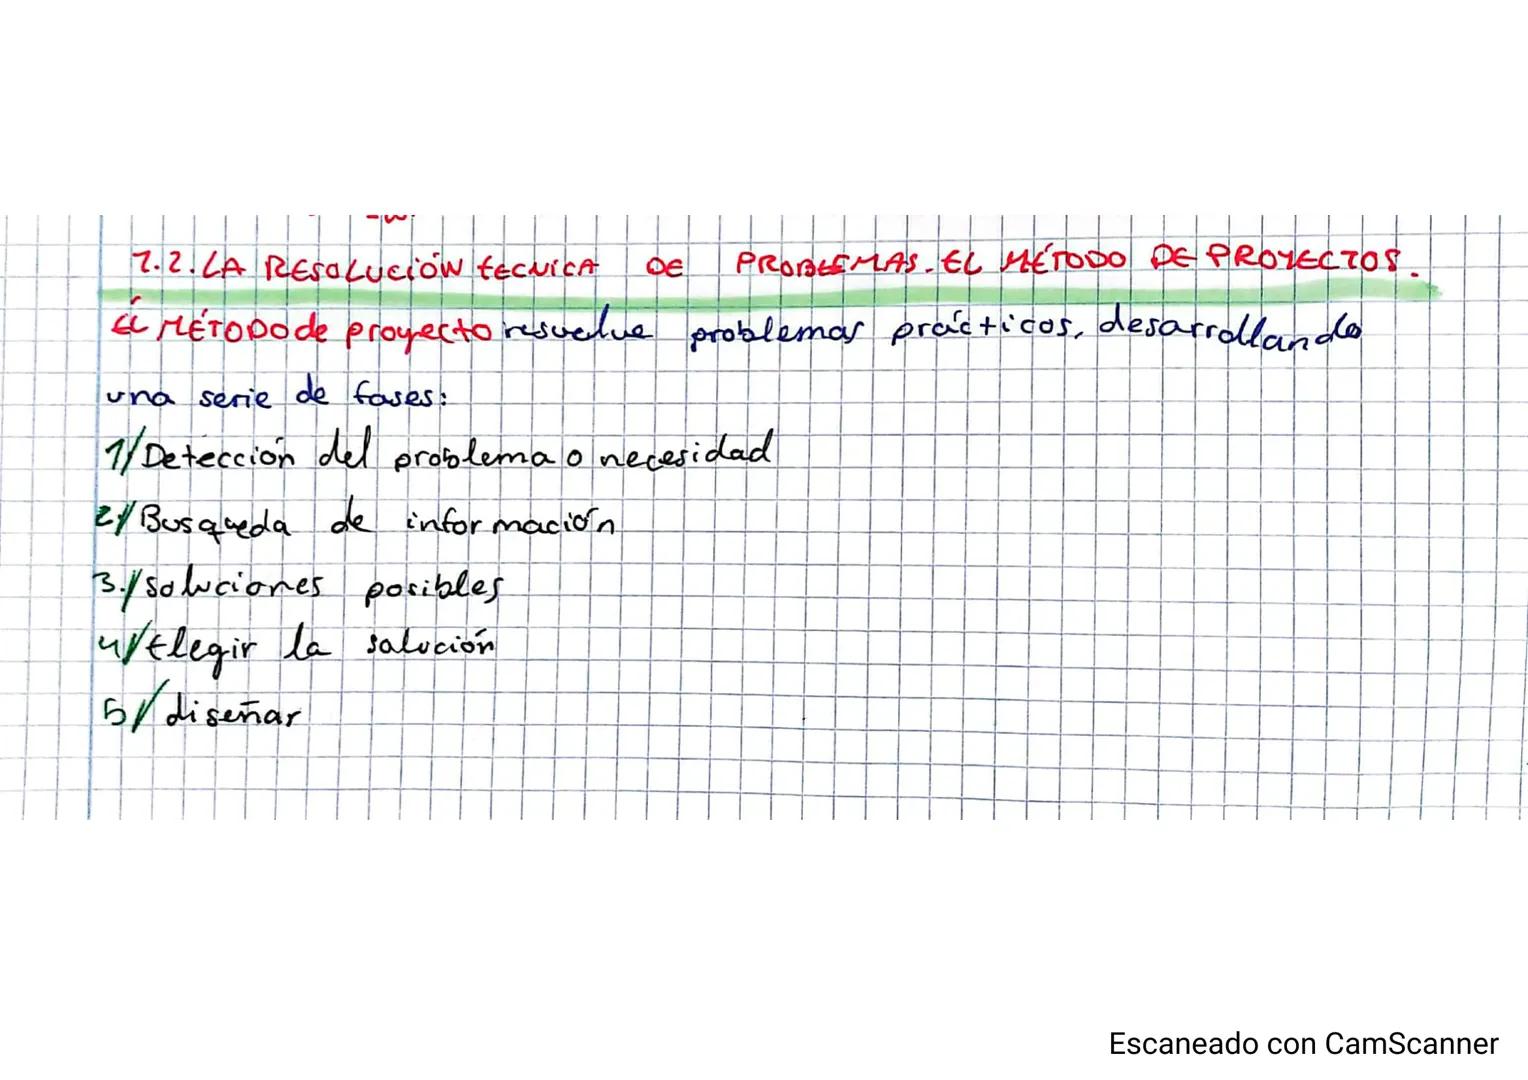 1.2. LA RESOLUCIÓN tECNICA DE PROBLEMAS. EL MÉTODO DE PROYECTOS.
El MÉTODO de proyecto resuelve problemas prácticos, desarrollando
una serie de fases:
1/ Detección del problema o necesidad
2/ Busqueda de información
3./ soluciones posibles
4/ Elegir la solución
5/ diseñar
Escaneado con CamScanner